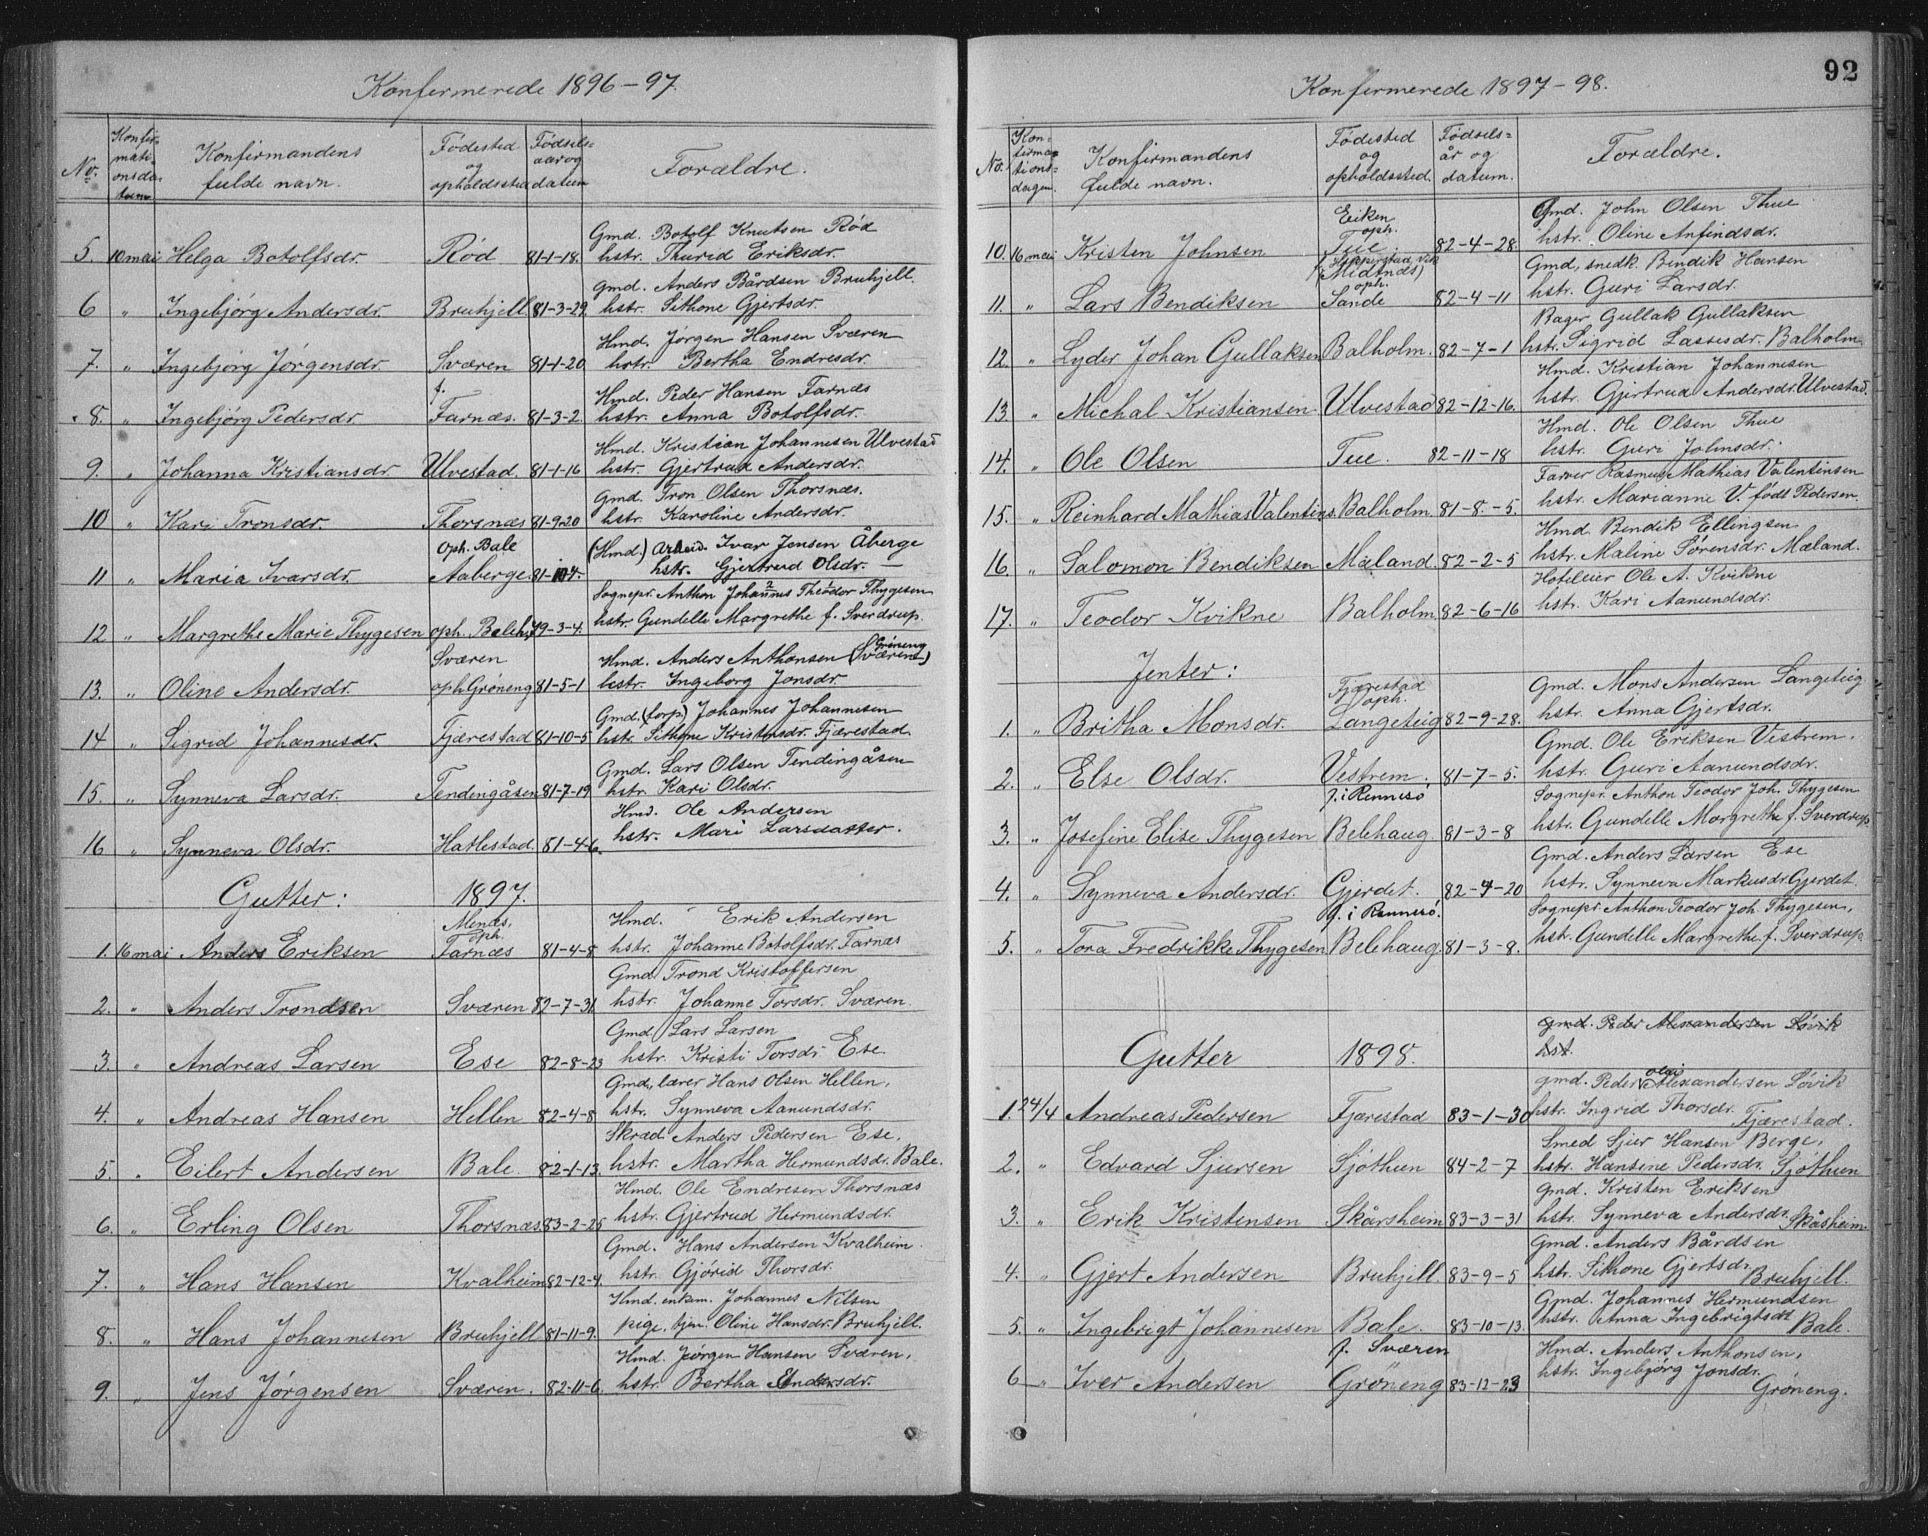 Konfermerede 1896-97.
No. Konfirmationsdatum Konfirmandens fulde navn. Fødested og opholdssted Fødselsaar og datum Forældre.
Gmd. Botolf Knutsen Rød
5. 10 mai Helga Botolfsdr. Rød 81-1-18. hstr. Thurid Eriksdr.
Gmd. Anders Bårdsen Bruhjell.
6 " Ingebjørg Andersdr. Bruhjell. 81-3-29. hstr. Sithone Gjertsdr.
Hmd. Jørgen Hansen Sværen
7. " Ingebjørg Jørgensdr. Sværen 81-1-20 hstr. Bertha Endresdr.
f. Hmd. Peder Hansen Farnæs
8. " Ingebjørg Pedersdr. Farnæs. 81-3-2. hstr. Anna Botolfsdr.
Hmd. Kristian Johannesen Ulvestad
9. " Johanna Kristiansdr. Ulvestad. 81-1-16 hstr. Gjertrud Andersdr.
Gmd. Tron Olsen Thorsnæs.
10 " Kari Tronsdr. Thorsnæs 81-9-20 hstr. Karoline Andersdr.
Oph. Bale (Hmd.) Arbeid. Ivar Jensen Åberge
11 " Maria Ivarsdr. Aaberge. 81-10-4. hstr. Gjertrud Olsdr. —
Sognepr. Anthon Johannes Theodor Thygesen
12 " Margrethe Marie Thygesen oph. Beleh. 79-3-4. hstr. Gundelle Margrethe f. Sverdrup.
Sværen Hmd. Anders Anthonsen (Sværen) Grøneng
13. " Oline Andersdr. oph Grøneng 81-5-1 hstr. Ingeborg Jonsdr.
Gmd. (forp.) Johannes Johannesen
14 " Sigrid Johannesdr. Fjærestad 81-10-5 hstr. Sithone Kristensdr. Fjærestad.
Gmd. Lars Olsen Tendingåsen
15. " Synneva Larsdr. Tendingåsen 81-7-19 hstr. Kari Olsdr.
Hmd. Ole Andersen
16 " Synneva Olsdr. Hatlestad. 81-4-6. hstr. Mari Larsdatter.
Gutter: 1897.
Menæs, oph. Hmd. Erik Andersen
1. 16 mai Anders Eriksen Farnæs 81-4-8 hstr. Johanne Botolfsdr. Farnæs
Gmd. Trond Kristoffersen
2. " Anders Trondsen Sværen 82-7-31 hstr. Johanne Torsdr. Sværen
Gmd. Lars Larsen
3. " Andreas Larsen Ese 82-8-23 hstr. Kristi Torsdr Ese.
Gmd, lærer Hans Olsen Hellen,
4. " Andreas Hansen Hellen 82-4-8 hstr. Synneva Aamundsdr.
Skræd. Anders Pedersen Ese,
5. " Eilert Andersen Bale. 82-1-13. hstr. Martha Hermundsdr. Bale.
Hmd. Ole Endresen Thorsnæs
6. " Erling Olsen Thorsnæs. 83-2-25 hstr. Gjertrud Hermundsdr.
Gmd. Hans Andersen Kvalheim.
7. " Hans Hansen Kvalheim 82-12-4. hstr. Gjørid Thorsdr.
Hmd. enkem. Johannes Nilsen
8. " Hans Johannesen Bruhjell 81-11-9. pige, tjen. Oline Hansdr. Bruhjell.
Hmd. Jørgen Hansen Sværen,
9. " Jens Jørgensen Sværen. 82-11-6. hstr. Bertha Endersdr.
92
Konfermerede 1897-98.
No. Konfirmationsdagen. Konfirmandens fulde navn. Fødested og opholdssted. Fødselsår og datum. Forældre.
Eiken oph. Gmd. John Olsen Thue
10. 16 mai Kristen Johnsen Tue. 82-4-28. hstr. Oline Anfindsdr.
(Midtnæs) oph. Gmd, snedk. Bendik Hansen
11. " Lars Bendiksen Sande 82-4-11 hstr. Guri Larsdr.
Bager Gullak Gullaksen
12. " Lyder Johan Gullaksen Balholm. 82-7-1 hstr. Sigrid Lassesdr. Balholm.
Hmd. Kristian Johannesen
13 " Michal Kristiansen Ulvestad 82-12-16. hstr. Gjertrud Andersdr. Ulvestad.
Hmd. Ole Olsen Thue
14. " Ole Olsen Tue. 82-11-18 hstr. Guri Johnsdr.
Farver Rasmus Mathias Valentinsen
15. " Reinhard Mathias Valentins. Balholm. 81-8-5. hstr. Marianne V. født Pedersen.
Hmd. Bendik Ellingsen
16. " Salomon Bendiksen Mæland. 82-2-5 hstr. Maline Sørensdr. Mæland.
Hoteleier Ole A. Kvikne
17. " Teodor Kvikne Balholm 82-6-16 hstr. Kari Aamundsdr.
Jenter:
Fjærestad oph. Gmd. Mons Andersen Langeteig
1. " Britha Monsdr. Langeteig 82-9-28. hstr. Anna Gjertsdr.
Gmd. Ole Eriksen Vestrem.
2. " Else Olsdr. Vestrem. 81-7-5. hstr. Guri Aamundsdr.
f. i Rennesö Sognepr. Anthon Teodor Joh. Thygesen
3. " Josefine Elise Thygesen Belehaug. 81-3-8 hstr. Gundelle Margrethe f. Sverdrup
Gmd. Anders Larsen Ese
4. " Synneva Andersdr. Gjerdet. 82-7-20 hstr. Synneva Markusdr. Gjerdet
f. i Rennesö. Sognepr. Anthon Teodor Joh. Thygesen,
5. " Tora Fredrikke Thygesen Belehaug 81-3-8. hstr. Gundelle Margrethe f. Sverdrup
gmd. Peder Alexandersen Løvik
Gutter 1898. hst.
gmd. Peder Olai Alexandersen Løvik
1. 24/4 Andreas Pedersen Fjærestad 83-1-30 hstr. Ingrid Thorsdr. Fjærestad.
Smed Sjur Hansen Berge,
2. " Edvard Sjursen Sjøthun 84-2-7 hstr. Hansine Pedersdr. Sjøthun
Gmd. Kristen Eriksen
3. " Erik Kristensen Skårsheim 83-3-31 hstr. Synneva Andersdr. Skåsheim.
Gmd. Anders Bårdsen
4. " Gjert Andersen Bruhjell. 83-9-5 hstr. Sithone Gjertsdr. Bruhjell.
Gmd. Johannes Hermundsen
5. " Ingebrigt Johannesen Bale. 83-10-13. hstr. Anna Ingebrigtsdt Bale.
f. Sværen Hmd. Anders Anthonsen,
6 " Iver Andersen Grøneng 83-12-23 hstr. Ingebjørg Jonsdr. Grøneng.